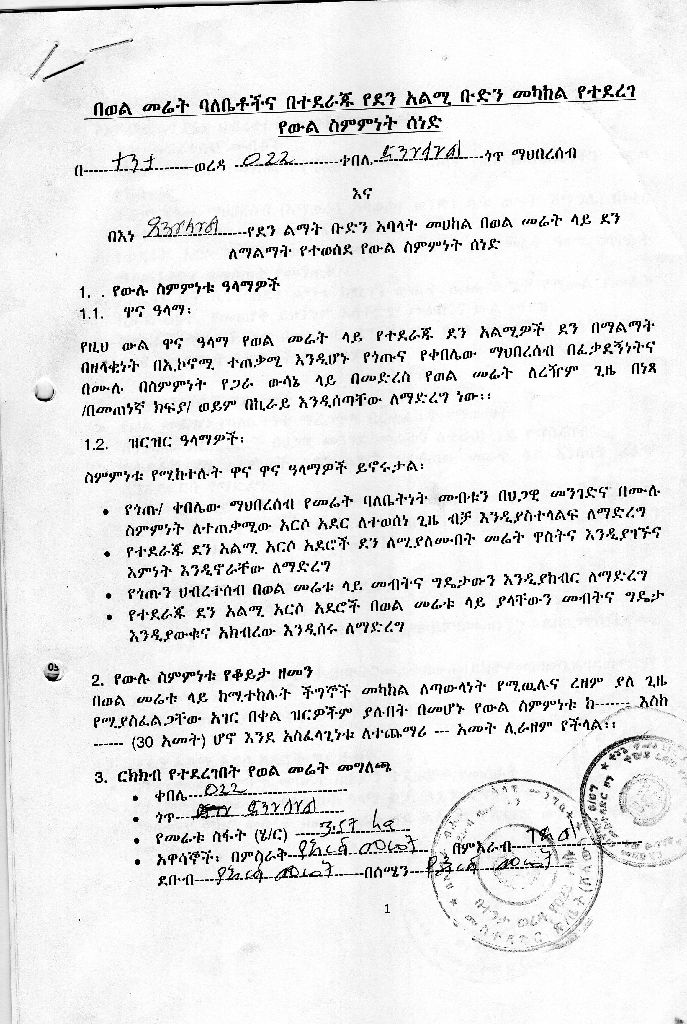 በወል መሬት ባለቤቶችና በተደራጁ የደን አልሚ ቡድን መካከል የተደረገ
የውል ስምምነት ሰነድ
በ---------ወረዳ 022 ቀበሌ---------ጎጥ ማህበረሰብ
እና
በእነ ---------የደን ልማት ቡድን አባላት መሀከል በወል መሬት ላይ ደን
ለማልማት የተወሰደ የውል ስምምነት ሰነድ
1. . የውሉ ስምምነቱ ዓላማዎች
1.1. ዋና ዓላማ፡
የዚህ ውል ዋና ዓላማ የወል መሬት ላይ የተደራጁ ደን አልሚዎች ደን በማልማት
በዘላቂነት በኢኮኖሚ ተጠቃሚ እንዲሆኑ የጎጡና የቀበሌው ማህበረሰብ በፈቃደኝነትና
በሙሉ በስምምነት የጋራ ውሳኔ ላይ በመድረስ የወል መሬት ለረዥም ጊዜ በነጻ
/በመጠነኛ ክፍያ/ ወይም በኪራይ እንዲሰጣቸው ለማድረግ ነው፡፡
1.2. ዝርዝር ዓላማዎች፡
ስምምነቱ የሚከተሉት ዋና ዋና ዓላማዎች ይኖሩታል፡
• የጎጡ/ ቀበሌው ማህበረሰብ የመሬት ባለቤትነት መብቱን በህጋዊ መንገድና በሙሉ
ስምምነት ለተጠቃሚው አርሶ አደር ለተወሰነ ጊዜ ብቻ እንዲያስተላልፍ ለማድረግ
• የተደራጁ ደን አልሚ አርሶ አደሮች ደን ለሚያለሙበት መሬት ዋስትና እንዲያገኙና
እምነት እንዲኖራቸው ለማድረግ
• የጎጡን ህብረተሰብ በወል መሬቱ ላይ መብትና ግዴታውን እንዲያከብር ለማድረግ
• የተደራጁ ደን አልሚ አርሶ አደሮች በወል መሬቱ ላይ ያላቸውን መብትና ግዴታ
እንዲያውቁና አክብረው እንዲሰሩ ለማድረግ
2. የውሉ ስምምነቱ የቆይታ ዘመን
በወል መሬቱ ላይ ከሚተከሉት ችግኞች መካከል ለጣውላነት የሚዉሉና ረዘም ያለ ጊዜ
የሚያስፈልጋቸው አገር በቀል ዝርዎችም ያሉበት በመሆኑ የውል ስምምነቱ ከ------- እስከ
------ (30 አመት) ሆኖ እንደ አስፈላጊነቱ ለተጨማሪ --- አመት ሊራዘም የችላል፡፡
3. ርክክብ የተደረገበት የወል መሬት መግለጫ
• ቀበሌ---022---------
• ጎጥ---------
• የመሬቱ ስፋት (ሄ/ር) ---3.57 ha
• አዋሳኞች፡ በምስራት--------- በምእራብ---------
ደቡብ---------በሰሜን---------
1